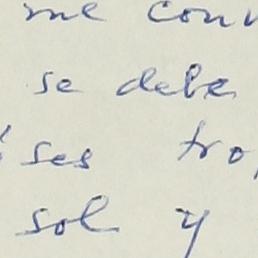 me conv
se debe
ses tro
sol y